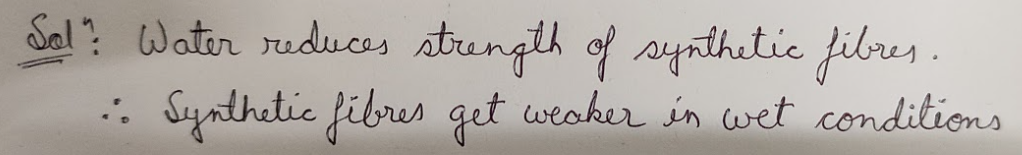 Solⁿ: Water reduces strength of synthetic fibres.
∴ Synthetic fibres get weaker in wet conditions